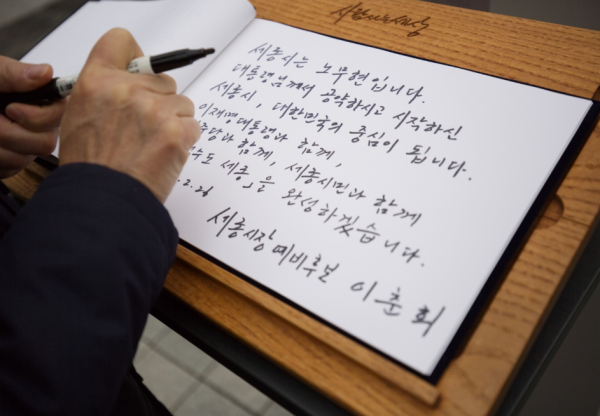 사람사는세상
세종시는 노무현입니다.
대통령님께서 공약하시고 시작하신
세종시, 대한민국의 중심이 됩니다.
이재명대통령과 함께,
주당과 함께, 세종시민과 함께
수도 세종」을 완성하겠습니다.
.2.26
세종시장 예비후보 이춘희